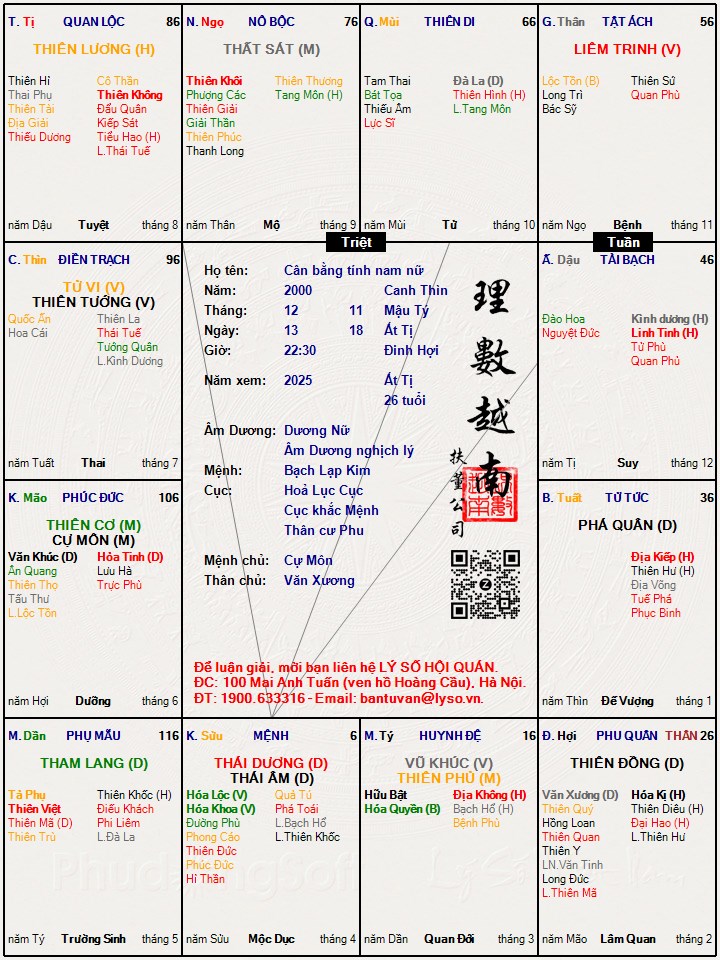 T. Tị QUAN LỘC 86
THIÊN LƯƠNG (H)
Thiên Hỉ Cô Thần
Thai Phụ Thiên Không
Thiên Tài Đẩu Quân
Địa Giải Kiếp Sát
Thiếu Dương Tiểu Hao (H)
L.Thái Tuế
năm Dậu Tuyệt tháng 8
N. Ngọ NÔ BỘC 76
THẤT SÁT (M)
Thiên Khôi Thiên Thương
Phượng Các Tang Môn (H)
Thiên Giải
Giải Thần
Thiên Phúc
Thanh Long
năm Thân Mộ tháng 9
Q. Mùi THIÊN DI 66
Tam Thai Đà La (D)
Bát Tọa Thiên Hình (H)
Thiếu Âm L.Tang Môn
Lực Sĩ
năm Mùi Tử tháng 10
G. Thân TẬT ÁCH 56
LIÊM TRINH (V)
Lộc Tồn (B) Thiên Sứ
Long Trì Quan Phù
Bác Sỹ
năm Ngọ Bệnh tháng 11
Triệt
Tuần
C. Thìn ĐIỀN TRẠCH 96
TỬ VI (V)
THIÊN TƯỚNG (V)
Quốc Ấn Thiên La
Hoa Cái Thái Tuế
Tướng Quân
L.Kình Dương
năm Tuất Thai tháng 7
Họ tên: Cân bằng tính nam nữ
Năm: 2000 Canh Thìn
Tháng: 12 11 Mậu Tý
Ngày: 13 18 Ất Tị
Giờ: 22:30 Đinh Hợi
Năm xem: 2025 Ất Tị
26 tuổi
Âm Dương: Dương Nữ
Âm Dương nghịch lý
Mệnh: Bạch Lạp Kim
Cục: Hoả Lục Cục
Cục khắc Mệnh
Thân cư Phu
Mệnh chủ: Cự Môn
Thân chủ: Văn Xương
理數越南
扶董公司
Để luận giải, mời bạn liên hệ LÝ SỐ HỘI QUÁN.
ĐC: 100 Mai Anh Tuấn (ven hồ Hoàng Cầu), Hà Nội.
ĐT: 1900.633316 - Email: bantuvan@lyso.vn.
Ấ. Dậu TÀI BẠCH 46
Đào Hoa Kình dương (H)
Nguyệt Đức Linh Tinh (H)
Tử Phù
Quán Phủ
năm Tị Suy tháng 12
K. Mão PHÚC ĐỨC 106
THIÊN CƠ (M)
CỰ MÔN (M)
Văn Khúc (D) Hỏa Tinh (D)
Ân Quang Lưu Hà
Thiên Thọ Trực Phù
Tấu Thư
L.Lộc Tồn
năm Hợi Dưỡng tháng 6
B. Tuất TỬ TỨC 36
PHÁ QUÂN (D)
Địa Kiếp (H)
Thiên Hư (H)
Địa Võng
Tuế Phá
Phục Binh
năm Thìn Đế Vượng tháng 1
M. Dần PHỤ MẪU 116
THAM LANG (D)
Tả Phụ Thiên Khốc (H)
Thiên Việt Điếu Khách
Thiên Mã (D) Phi Liêm
Thiên Trù L.Đà La
năm Tý Trường Sinh tháng 5
K. Sửu MỆNH 6
THÁI DƯƠNG (D)
THÁI ÂM (D)
Hóa Lộc (V) Quả Tú
Hóa Khoa (V) Phá Toái
Đường Phù L.Bạch Hổ
Phong Cáo L.Thiên Khốc
Thiên Đức
Phúc Đức
Hỉ Thần
năm Sửu Mộc Dục tháng 4
M. Tý HUYNH ĐỆ 16
VŨ KHÚC (V)
THIÊN PHỦ (M)
Hữu Bật Địa Không (H)
Hóa Quyền (B) Bạch Hổ (H)
Bệnh Phù
năm Dần Quan Đới tháng 3
Đ. Hợi PHU QUÂN THÂN 26
THIÊN ĐỒNG (D)
Văn Xương (D) Hóa Kị (H)
Thiên Quý Thiên Diêu (H)
Hồng Loan Đại Hao (H)
Thiên Quan L.Thiên Hư
Thiên Y
LN.Văn Tinh
Long Đức
L.Thiên Mã
năm Mão Lâm Quan tháng 2